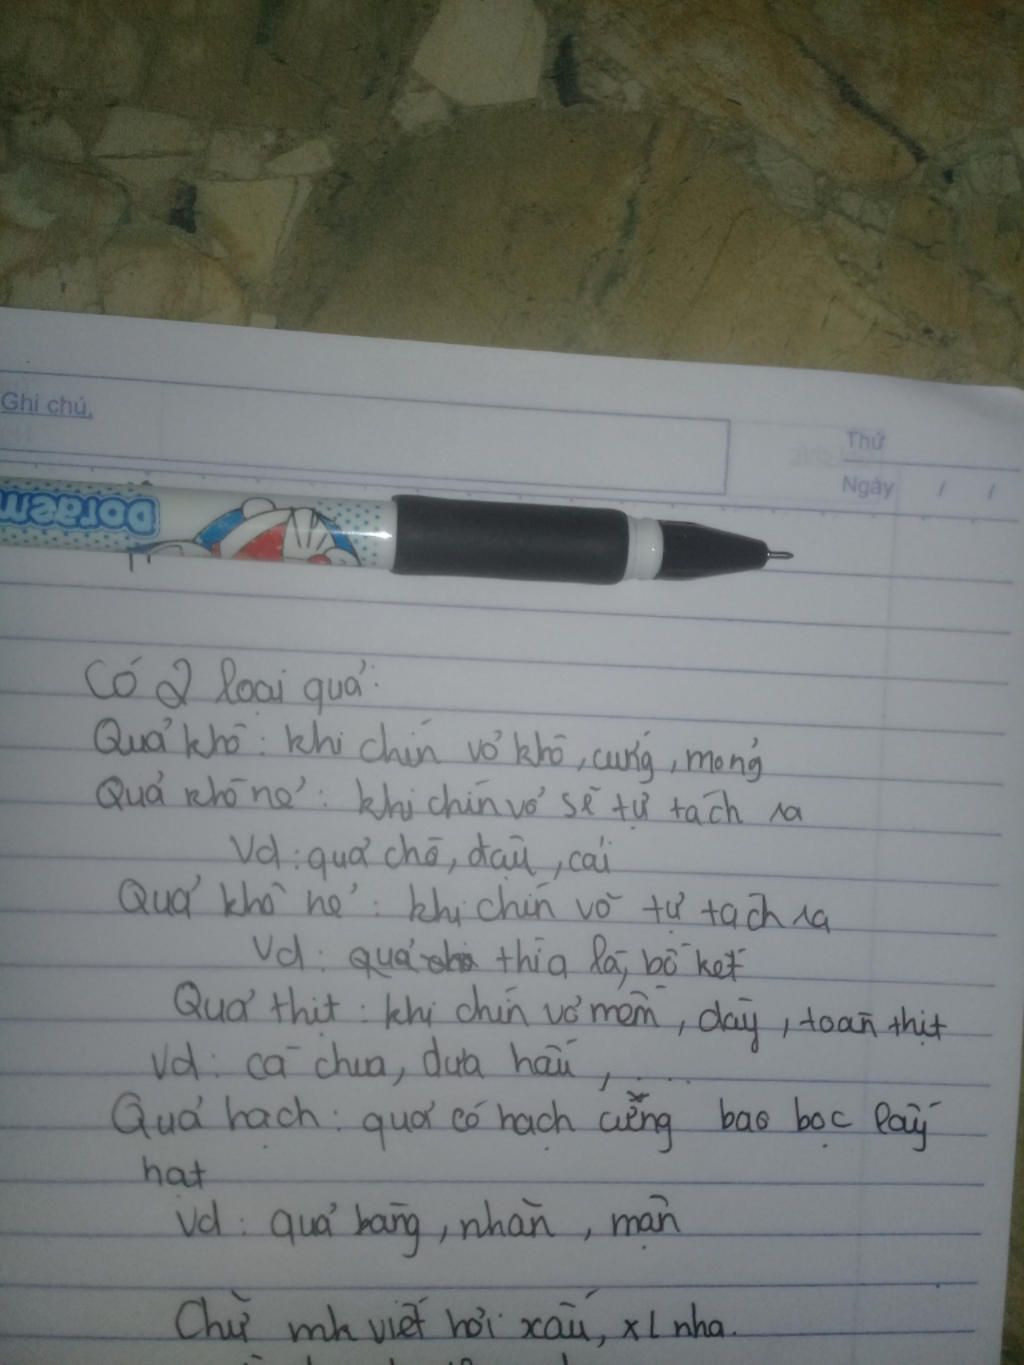 Ghi chú.
Thứ
Ngày / /
Doraem
Có 2 loại quả:
Quả khô: khi chín vỏ khô, cứng, mỏng
Quả khô nẻ: khi chín vỏ sẽ tự tách ra
Vd: quả chò, đậu, cải
Quả khô nẻ: khi chín vỏ tự tách ra
Vd: quả thìa là, bồ kết
Quả thịt: khi chín vỏ mềm, dày, toàn thịt
Vd: cà chua, dưa hấu, ....
Quả hạch: quả có hạch cứng bao bọc lấy
hạt
Vd: quả bàng, nhãn, mận
Chữ mk viết hơi xấu, xl nha.